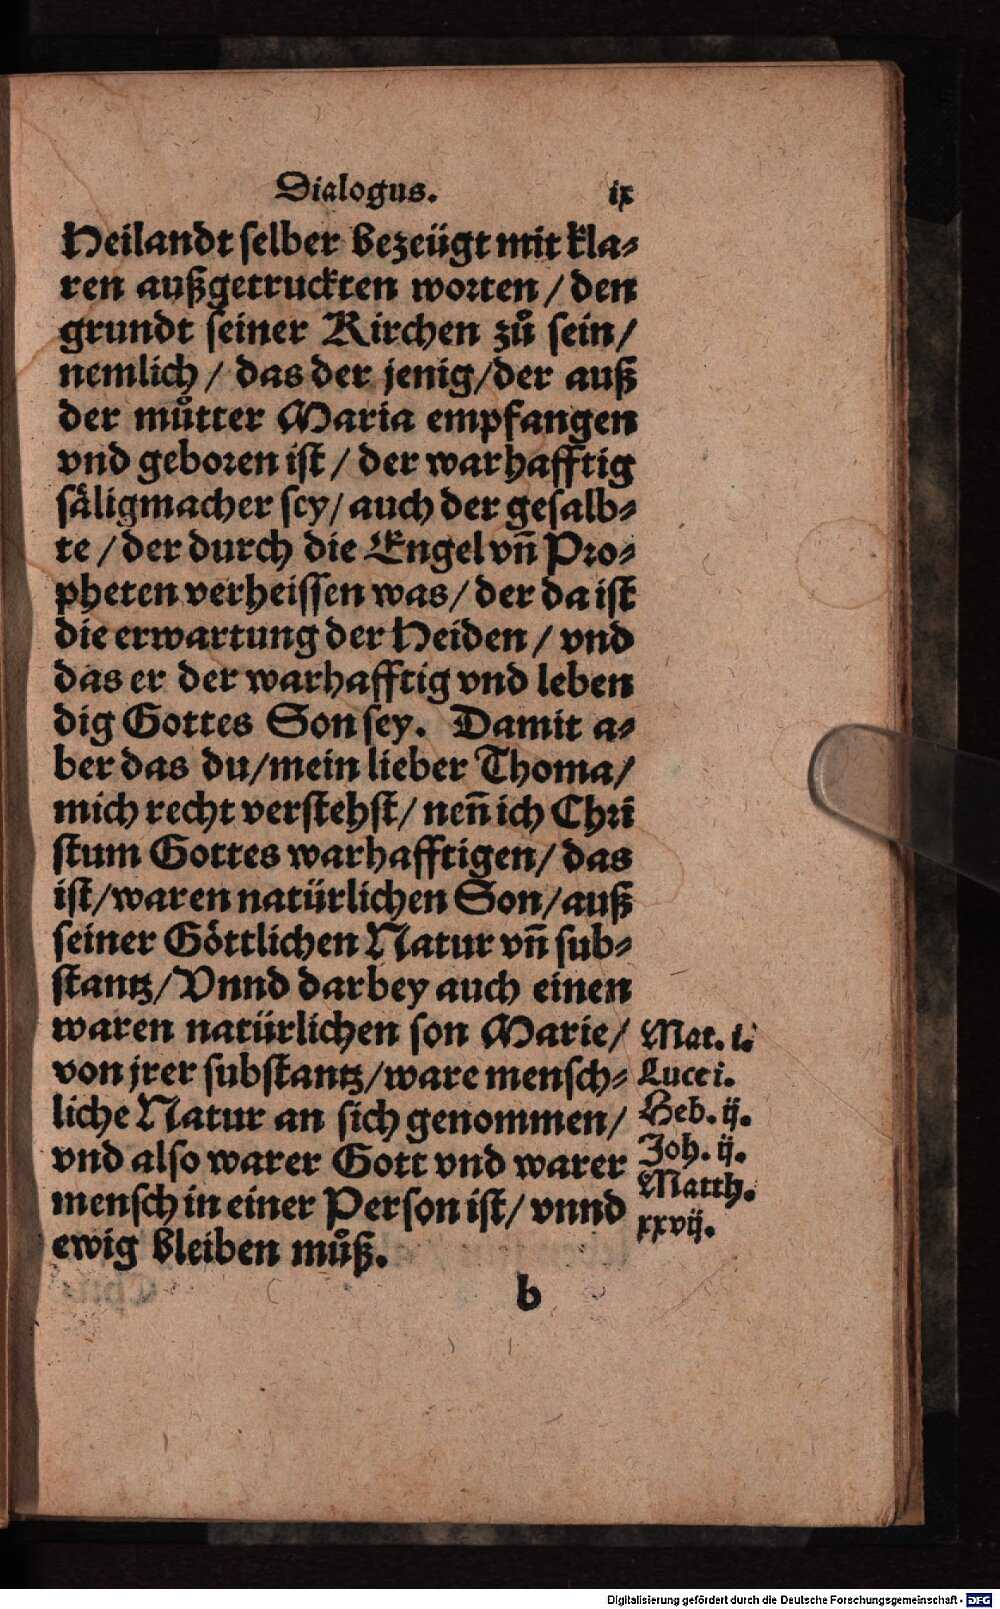 Dialogus. ix
Heilandt selber bezeügt mit kla⸗
ren außgetruckten worten / den
grundt seiner Kirchen zů sein /
nemlich / das der jenig / der auß
der můtter Maria empfangen
vnd geboren ist / der warhafftig
säligmacher sey / auch der gesalb⸗
te / der durch die Engel vñ Pro⸗
pheten verheissen was / der da ist
die erwartung der Heiden / vnd
das er der warhafftig vnd leben
dig Gottes Son sey. Damit a⸗
ber das du / mein lieber Thoma /
mich recht verstehst / neñ ich Chri
stum Gottes warhafftigen / das
ist / waren natürlichen Son / auß
seiner Göttlichen Natur vñ sub⸗
stantz / Vnnd darbey auch einen
waren natürlichen son Marie /
von jrer substantz / ware mensch⸗
liche Natur an sich genommen /
vnd also warer Gott vnd warer
mensch in einer Person ist / vnnd
ewig bleiben můß.
Mat. i.
Luce i.
Heb. ij.
Joh. ij.
Matth.
xxvij.
b
Digitalisierung gefördert durch die Deutsche Forschungsgemeinschaft - DFG